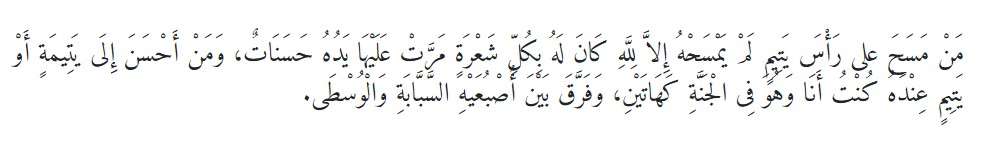 مَنْ مَسَحَ على رَأْسَ يَتِيمٍ لَمْ يَمْسَحْهُ إِلاَّ لِلَّهِ كَانَ لَهُ بِكُلِّ شَعْرَةٍ مَرَّتْ عَلَيْهَا يَدُهُ حَسَنَاتٌ، وَمَنْ أَحْسَنَ إِلَى يَتِيمَةٍ أَوْ
يَتِيمٍ عِنْدَهُ كُنْتُ أَنَا وَهُوَ فِى الْجَنَّةِ كَهَاتَيْنِ، وَفَرَّقَ بَيْنَ أُصْبُعَيْهِ السَّبَّابَةِ وَالْوُسْطَى.